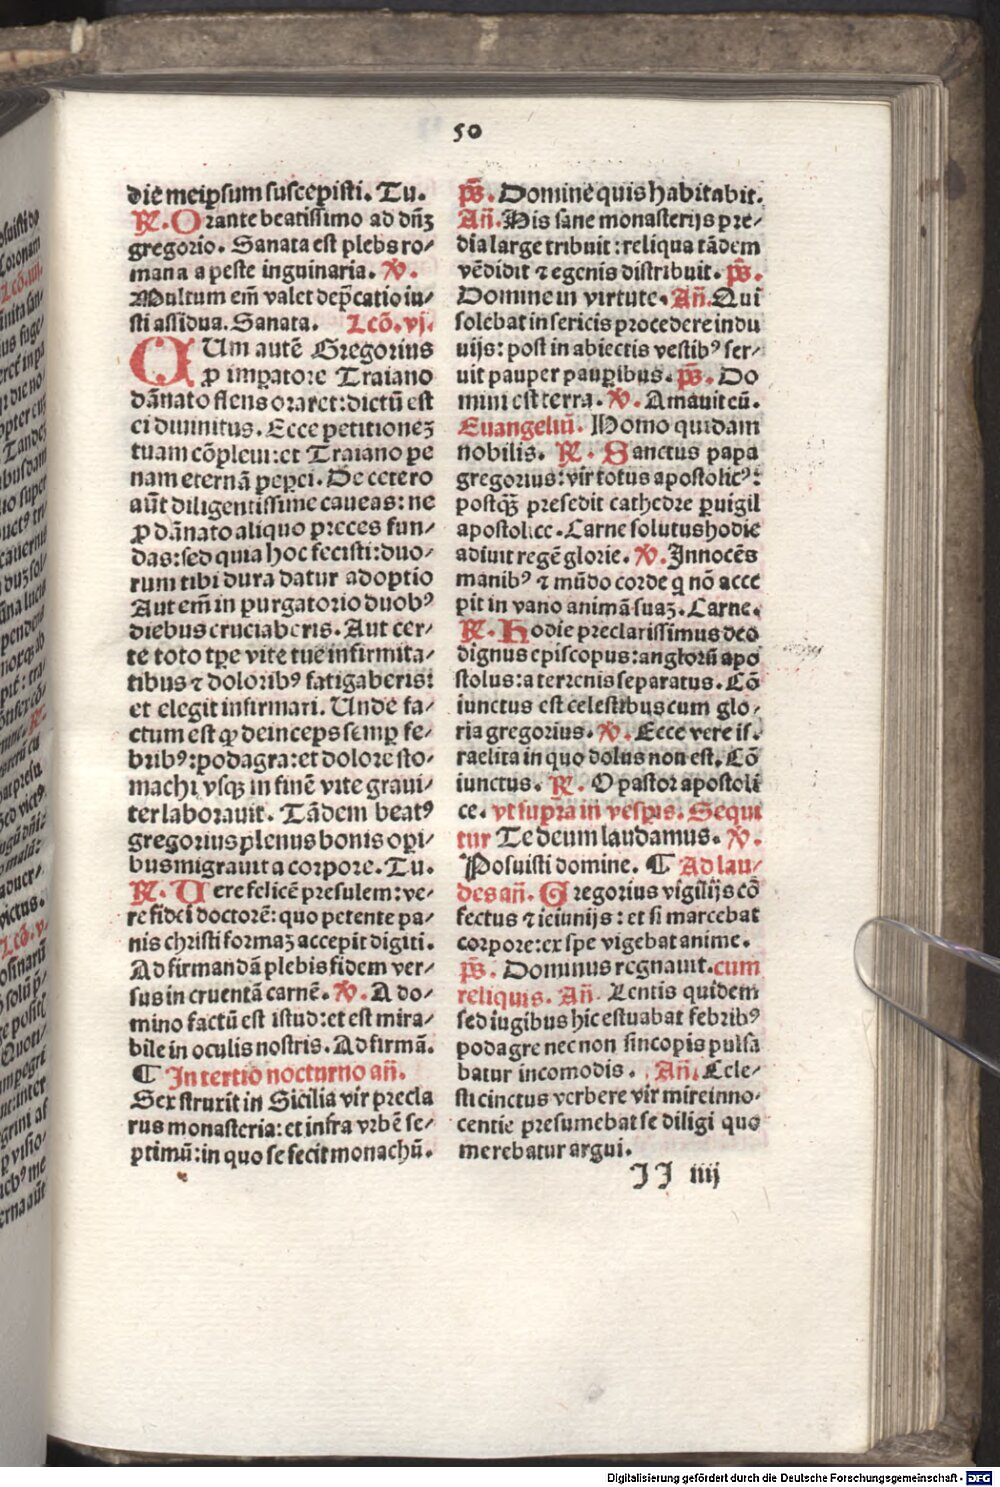 50
die meip̱sum suscepisti. Tu.
R̃. Orante beatissimo ad dn̄ꝫ
gregorio. Sanata est plebs ro⸗
mana a peste inguinaria. V̸.
Multum em̄ valet dep̄catio iu⸗
sti assidua. Sanata. Lcō. vj.
CUm autē Gregorius
ꝓ imꝑatore Traiano
dānato flens oraret: dictū est
ei diuinitus. Ecce petitioneꝫ
tuam cōpleui: et Traiano pe
nam eternā peꝑci. De cetero
aūt diligentissime caueas: ne
ꝓ dānato aliquo preces fun⸗
das: sed quia hoc fecisti: duo⸗
rum tibi dura datur adoptio
Aut em̄ in purgatorio duobꝰ
diebus cruciaberis. Aut cer⸗
te toto tꝑe vite tue infirmita⸗
tibus ⁊ doloribꝰ fatigaberis:
et elegit infirmari. Unde fa⸗
ctum est ꝙ deinceps semꝑ fe⸗
bribꝰ: podagra: et dolore sto⸗
machi vsqꝫ in finē vite graui⸗
ter laborauit. Tādem beatꝰ
gregorius plenus bonis oꝑi⸗
bus migrauit a corpore. Tu.
R̃. Uere felicē presulem: ve⸗
re fidei doctorē: quo petente pa⸗
nis christi formaꝫ accepit digiti.
Ad firmandā plebis fidem ver⸗
sus in cruentā carnē. V̸. A do⸗
mino factū est istud: et est mira⸗
bile in oculis nostris. Ad firmā.
¶ In tertio nocturno añ.
Sex struxit in Sicilia vir precla
rus monasteria: et infra vrbē se⸗
ptimū: in quo se fecit monachū.
p̄s. Domine quis habitabit.
Añ. His sane monasterijs pre⸗
dia large tribuit: reliqua tādem
vēdidit ⁊ egenis distribuit. p̄s.
Domine in virtute. Añ. Qui
solebat in sericis procedere indu
uijs: post in abiectis vestibꝰ ser⸗
uit pauper pauꝑibus. p̄s. Do
mini est terra. V̸. Amauit eū.
Euangeliū. Homo quidam
nobilis. R̃. Sanctus papa
gregorius: vir totus apostolicꝰ:
postqꝫ̄ presedit cathedre ꝑuigil
apostolice. Carne solutus hodie
adiuit regē glorie. V̸. Innocēs
manibꝰ ⁊ mūdo corde q nō acce
pit in vano animā suaꝫ. Carne.
R̃. Hodie preclarissimus deo
dignus episcopus: anglorū apo
stolus: a terrenis separatus. Cō
iunctus est celestibus cum glo⸗
ria gregorius. V̸. Ecce vere is⸗
raelita in quo dolus non est. Cō
iunctus. R̃. O pastor apostoli
ce. vt supra in vesꝑis. Sequi
tur Te deum laudamus. V̸.
Posuisti domine. ¶ Ad lau⸗
des añ. Gregorius vigilijs cō
fectus ⁊ ieiunijs: et si marcebat
corpore: ex spe vigebat anime.
p̄s. Dominus regnauit. cum
reliquis. Añ. Lentis quidem
sed iugibus hic estuabat febribꝰ
podagre nec non sincopis pulsa
batur incomodis. Añ. Ecle⸗
sti cinctus verbere vir mire inno⸗
centie presumebat se diligi quo
merebatur argui.
II iiij
Digitalisierung gefördert durch die Deutsche Forschungsgemeinschaft - DFG